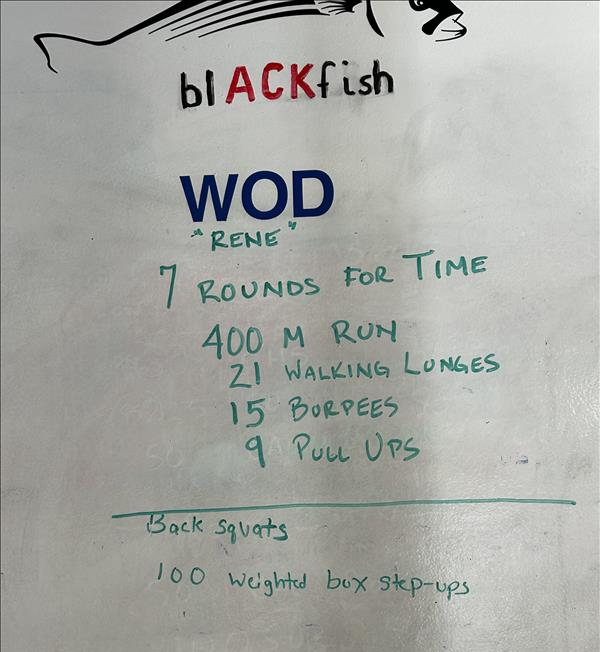 blACKfish
WOD
"RENE"
7 ROUNDS FOR TIME
400 M RUN
21 WALKING LUNGES
15 BURPEES
9 PULL UPS
Back squats
100 weighted box step-ups